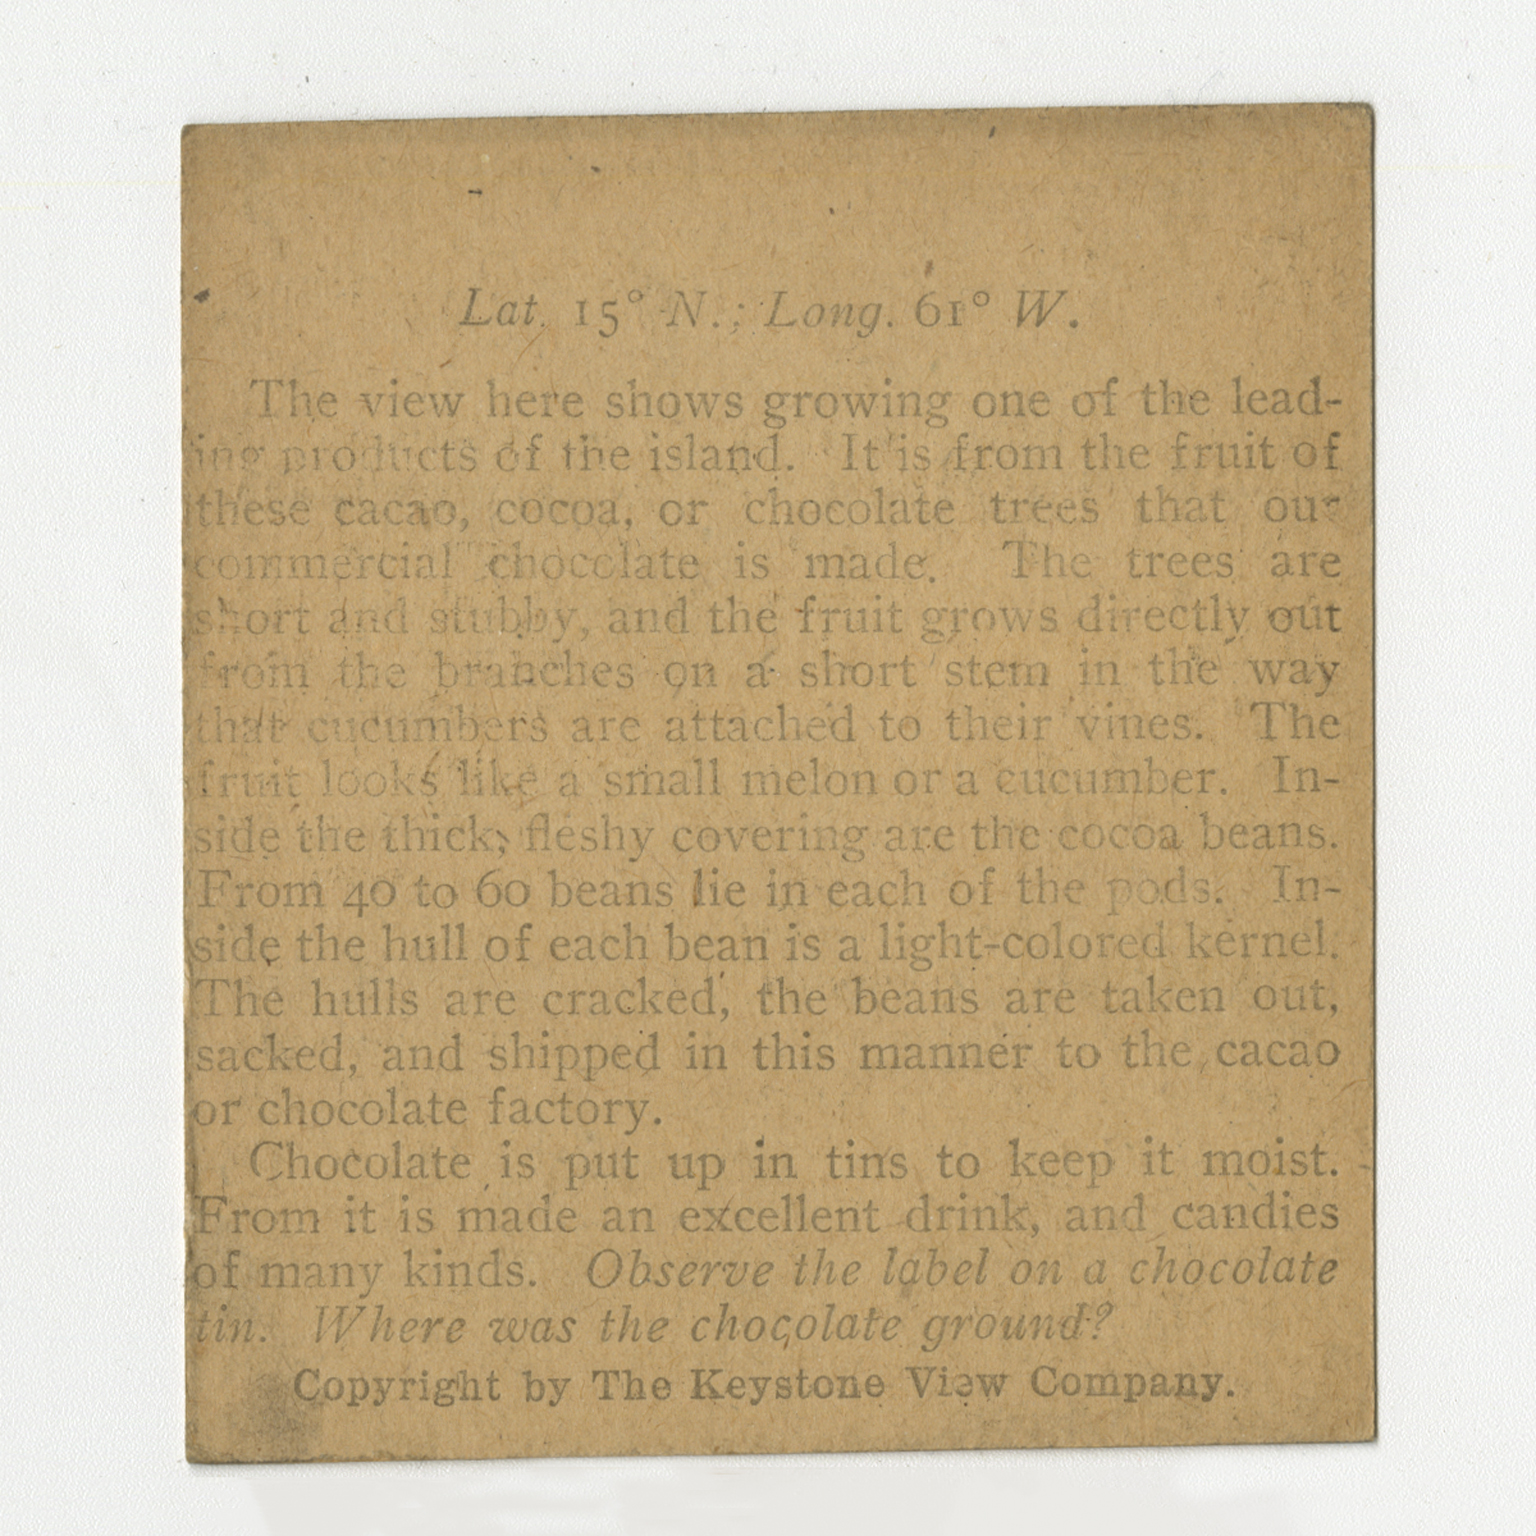 Lat. 15° N.; Long. 61° W.
The view here shows growing one of the lead-
ing products of the island. It is from the fruit of
these cacao, cocoa, or chocolate trees that our
commercial chocolate is made. The trees are
short and stubby, and the fruit grows directly out
from the branches on a short stem in the way
that cucumbers are attached to their vines. The
fruit looks like a small melon or a cucumber. In-
side the thick, fleshy covering are the cocoa beans.
From 40 to 60 beans lie in each of the pods. In-
side the hull of each bean is a light-colored kernel.
The hulls are cracked, the beans are taken out,
sacked, and shipped in this manner to the cacao
or chocolate factory.
Chocolate is put up in tins to keep it moist.
From it is made an excellent drink, and candies
of many kinds. Observe the label on a chocolate
tin. Where was the chocolate ground?
Copyright by The Keystone View Company.